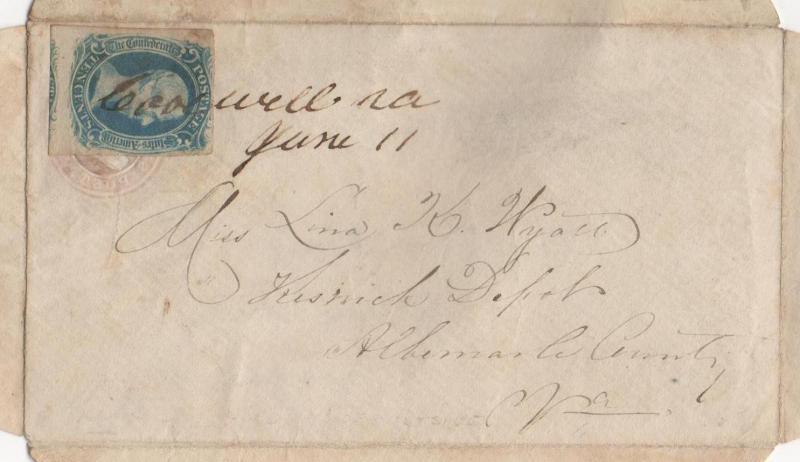 The Confederate
States of America
POSTAGE
TEN CENTS
June 11
Miss Lina K. Wyatt
Keswick Depot
Albemarle County
Va